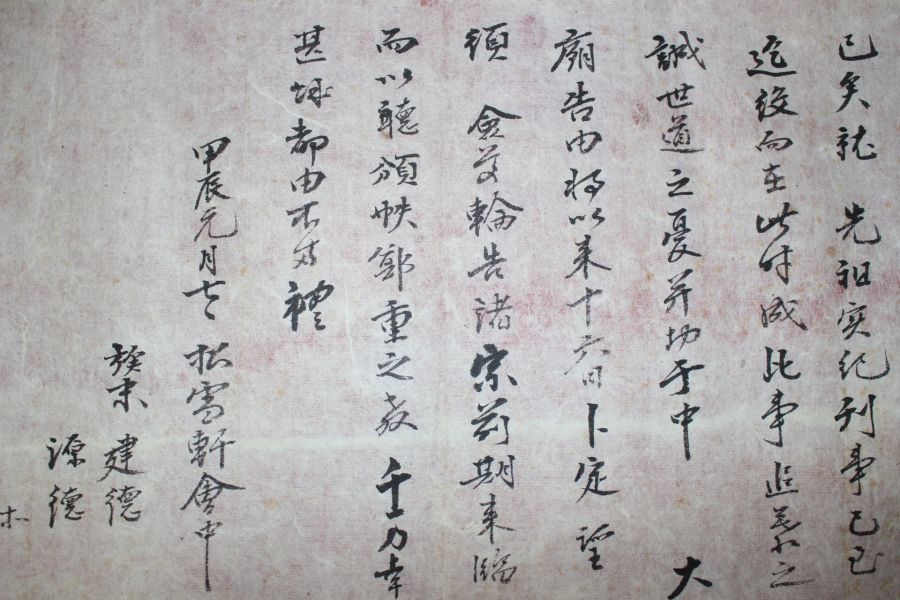 已矣就 先祖實紀刊事已
迄發而在此時成此事追慕之
誠世道之憂幷切于中 大
廟告由将以來十六日卜定望
須 僉 輪告諸宗前期來臨
而以聽頒帙鄭重之教千万幸
甚 都由不 禮
甲辰元月七 松雪軒會中
族末 建德
源德